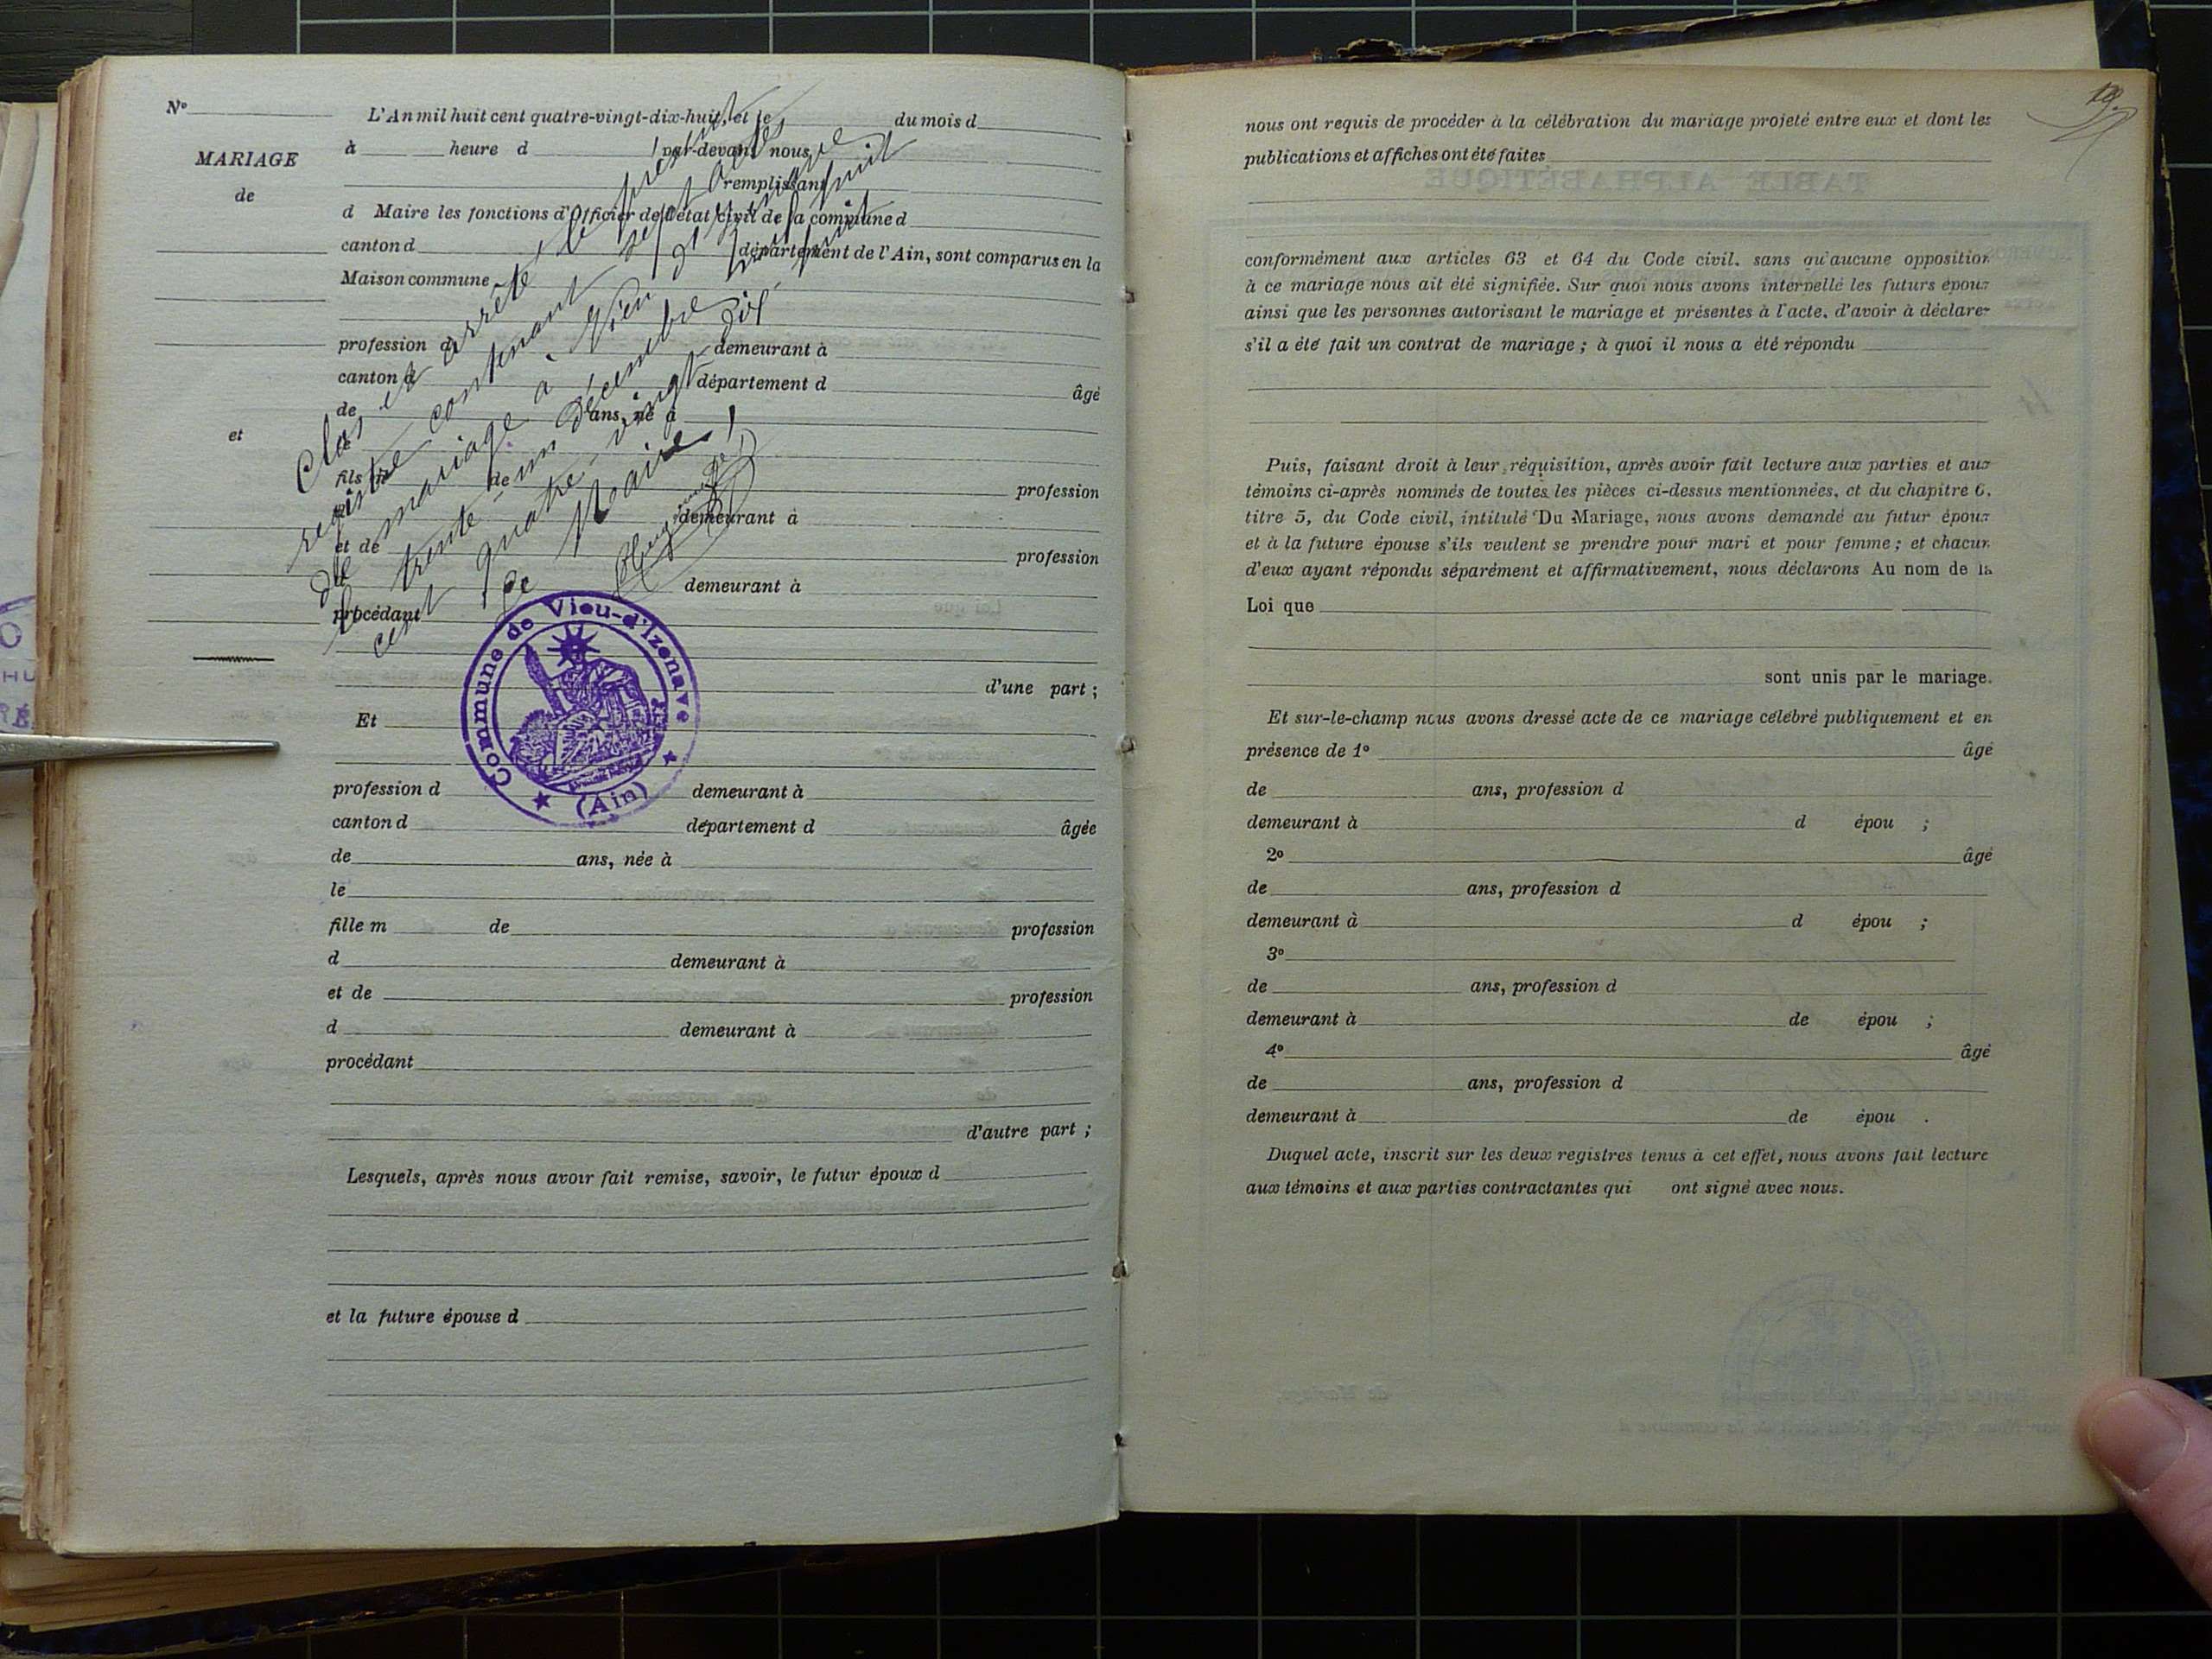 N°
MARIAGE
de
et
L'An mil huit cent quatre-vingt-dix-huit, et le du mois d
à heure d par-devant nous
remplissant
d Maire les fonctions d'Officier de l'état civil de la commune d
canton d département de l'Ain, sont comparus en la
Maison commune
profession d demeurant à
canton d département d âgé
de ans, né à
le
fils m de profession
d demeurant à
et de profession
d demeurant à
procédant
d'une part ;
Et
profession d demeurant à
canton d département d âgée
de ans, née à
le
fille m de profession
d demeurant à
et de profession
d demeurant à
procédant
d'autre part ;
Lesquels, après nous avoir fait remise, savoir, le futur époux d
et la future épouse d
Clos et arrêté le présent
registre contenant sept actes
de mariage à Vieu d'Izenave
le trente-un décembre mil huit
cent quatre-vingt dix huit
Le Maire !
Commune de Vieu-d'Izenave
★ (Ain) ★
19
nous ont requis de procéder à la célébration du mariage projeté entre eux et dont les
publications et affiches ont été faites
conformément aux articles 63 et 64 du Code civil. sans qu'aucune opposition
à ce mariage nous ait été signifiée. Sur quoi nous avons interpellé les futurs époux
ainsi que les personnes autorisant le mariage et présentes à l'acte. d'avoir à déclarer
s'il a été fait un contrat de mariage ; à quoi il nous a été répondu
Puis, faisant droit à leur réquisition, après avoir fait lecture aux parties et aux
témoins ci-après nommés de toutes les pièces ci-dessus mentionnées, et du chapitre 6,
titre 5, du Code civil, intitulé Du Mariage, nous avons demandé au futur époux
et à la future épouse s'ils veulent se prendre pour mari et pour femme ; et chacun
d'eux ayant répondu séparément et affirmativement, nous déclarons Au nom de la
Loi que
sont unis par le mariage.
Et sur-le-champ nous avons dressé acte de ce mariage célébré publiquement et en
présence de 1° âgé
de ans, profession d
demeurant à d épou ;
2° âgé
de ans, profession d
demeurant à d épou ;
3°
de ans, profession d
demeurant à de épou ;
4° âgé
de ans, profession d
demeurant à de épou .
Duquel acte, inscrit sur les deux registres tenus à cet effet, nous avons fait lecture
aux témoins et aux parties contractantes qui ont signé avec nous.